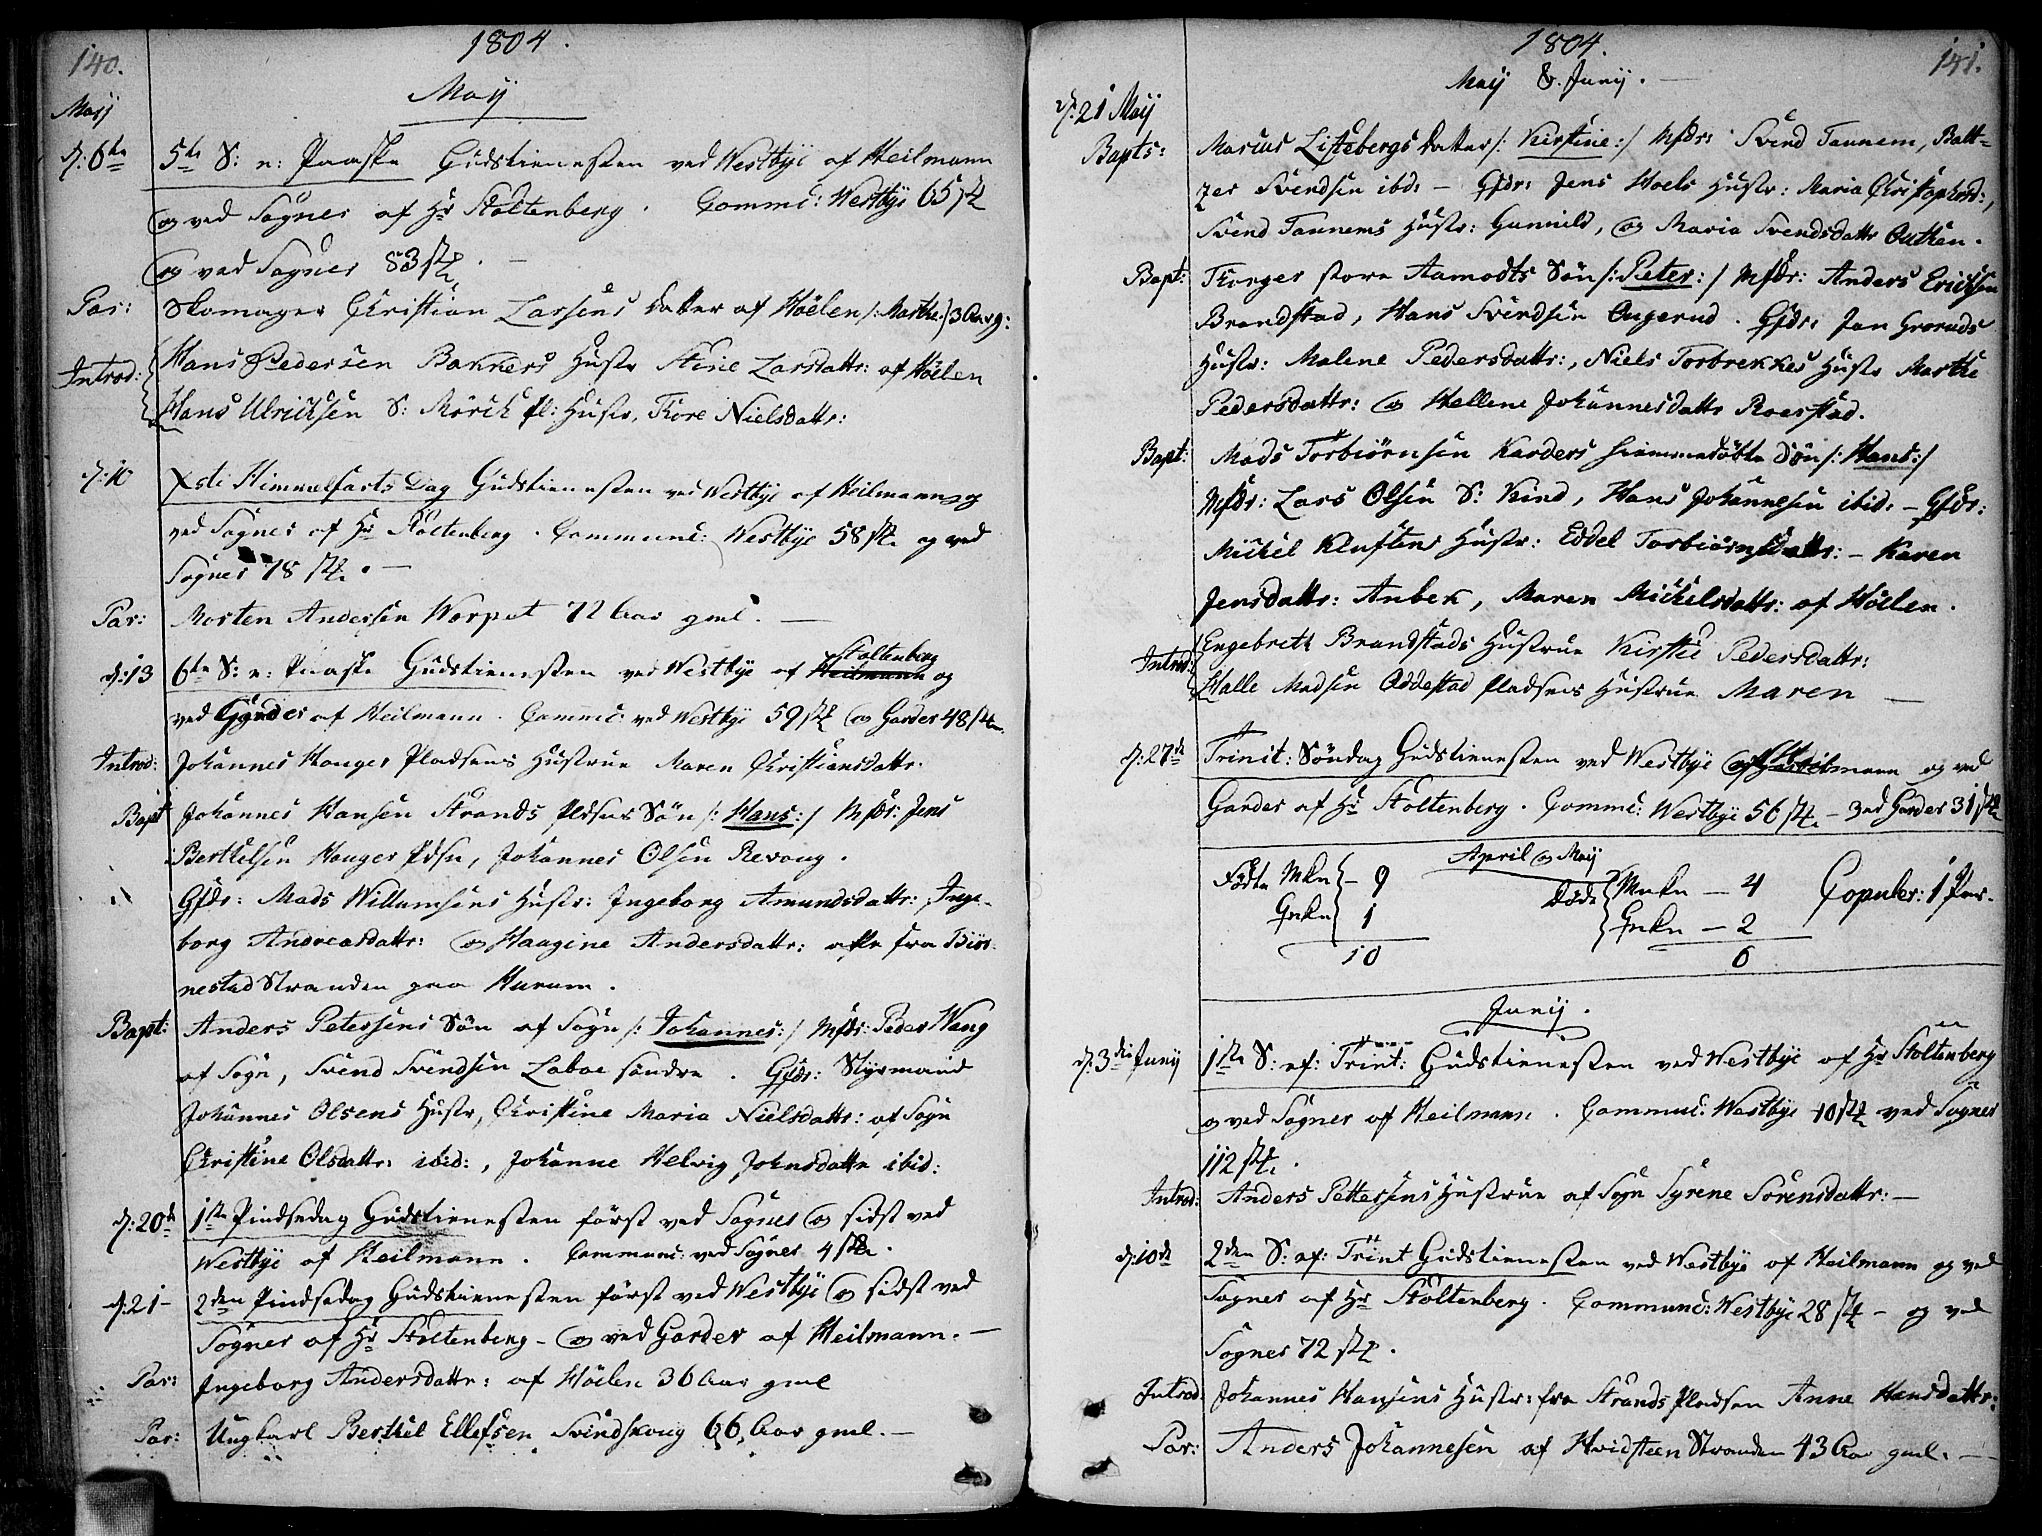 140.
1804.
May
May
d: 6te 5te S: e: Paaske Gudstienesten ved Westbye af Heilmann
og ved Sogner af Hr Stoltenberg. Commu: Westbye 65 stk
og ved Sogner 83 stk. —
Par: Skomager Christian Larsens datter af Höelen /: Marthe:/ 3 Aar g:
Introd: Hans Pedersen Bakkers Hustr Stine Larsdattr: af Höelen
Hans Ulrichsen S: Mörch pl: Hustr, Thore Nielsdattr:
d: 10 Xsti Himmelfarts Dag Gudstienesten ved Westbye af Heilmann og
ved Sogner af Hr Stoltenberg. Commune: Westbye 58 stk og ved
Sogner 78 stk. —
Par: Morten Andersen Worpet 72 Aar gml. —
Stoltenberg
d: 13 6te S: e: Paaske Gudstienesten ved Westbye af Heilmann og
ved Garder af Heilmann. Commu: ved Westbye 59 stk og Garder 48 stk.
Introd: Johannes Hauger Pladsens Hustrue Maren Christiansdattr.
Bapt Johannes Hansen Strands Pldsens Sön /: Hans:/ Mfdr: Jens
Berthelsen Hauger Pdsn, Johannes Olsen Revaug.
Gfdr: Mads Willumsens Hustr: Ingeborg Amundsdattr:, Inge-
borg Andreasdattr: og Haagine Andersdattr: alle fra Biör-
nestad Stranden paa Hurum.
Bapt: Anders Petersens Sön af Sogn /: Johannes:/ Mfdr: Peder Wang
af Sogn, Svend Svendsen Laboe söndre. Gfdr: Styrmand
Johannes Olsens Hustr, Christine Maria Nielsdattr: af Sogn
Christine Olsdattr: ibid:, Johanne Helvig Johnsdattr ibid:
d: 20de 1ste Pindsedag Gudstienesten först ved Sogner og sidst ved
Westbye af Heilmann. Communi: ved Sogner 4 stk.
d: 21 - 2den Pindsedag Gudstienesten först ved Westbye og sidst ved
Sogner af Hr Stoltenberg - og ved Garder af Heilmann. —
Par: Ingeborg Andersdattr: af Höelen 36 Aar gml
Par: Ungkarl Berthel Ellefsen Svindskoug 66 Aar gml. —
1804.
141.
May & Juny. —
d: 21 May
Bapts: Marius Listebergs datter /: Kirstine:/ Mfdr: Svend Tannem, Balt-
zer Svendsen ibd: - Gfdr: Jens Hoels Hustr: Maria Christophersd:,
Svend Tannems Hustr: Gunnild, og Maria Svendsdattr Outhen.
Bapt: Torger store Aamodts Sön /: Peter:/ Mfdr: Anders Erichsen
Brandstad, Hans Svendsen Ongerud. Gfdr: Jan Gроruds
Hustr: Malene Pedersdattr:, Niels Torbrekkes Hustr Marthe
Pedersdattr: og Hellene Johannesdattr Roerstad.
Bapt: Mads Torbiörnsen Karders hiemmedöbte Sön /: Hans:/
Mfdr: Lars Olsen S: Kind, Hans Johannesen ibid: - Gfdr:
Michel Kluftens Hustr: Eddel Torbiörnsdattr: - Karen
Jensdattr: Anbek, Maren Michelsdattr: af Höelen.
Introd: Engebreth Brandstads Hustrue Kirsti Pedersdattr:
Halle Madsen Oddestad Pladsens Hustrue Maren —
d: 27de Trinit: Söndag Gudstienesten ved Westbye af Heilmann og ved
Garder af Hr Stoltenberg. Commu: Westbye 56 stk. - ved Garder 31 stk
April og May
Födte Mkn - 9 Döde Mnkn - 4 Copuler: 1 Par.
Qnkn 1 Qnkn - 2
10 6
Juny.
d: 3die Juny 1ste S: ef: Trint: Gudstienesten ved Westbye af Hr Stoltenberg
og ved Sogner af Heilmann. Commu: Westbye 10 stk ved Sogner
112 stk.
Introd: Anders Pettersens Hustrue af Sogn Syrene Sörensdattr: —
d: 10de 2den S: ef: Trint Gudstienesten ved Westbye af Heilmann og ved
Sogner af Hr Stoltenberg. Communi: Westbye 28 stk - og ved
Sogner 72 stk.
Introd: Johannes Hansens Hustr: fra Strands Pladsen Anne Hansdattr:
Par: Anders Johannesen af Hvidsteen Stranden 43 Aar gml. —